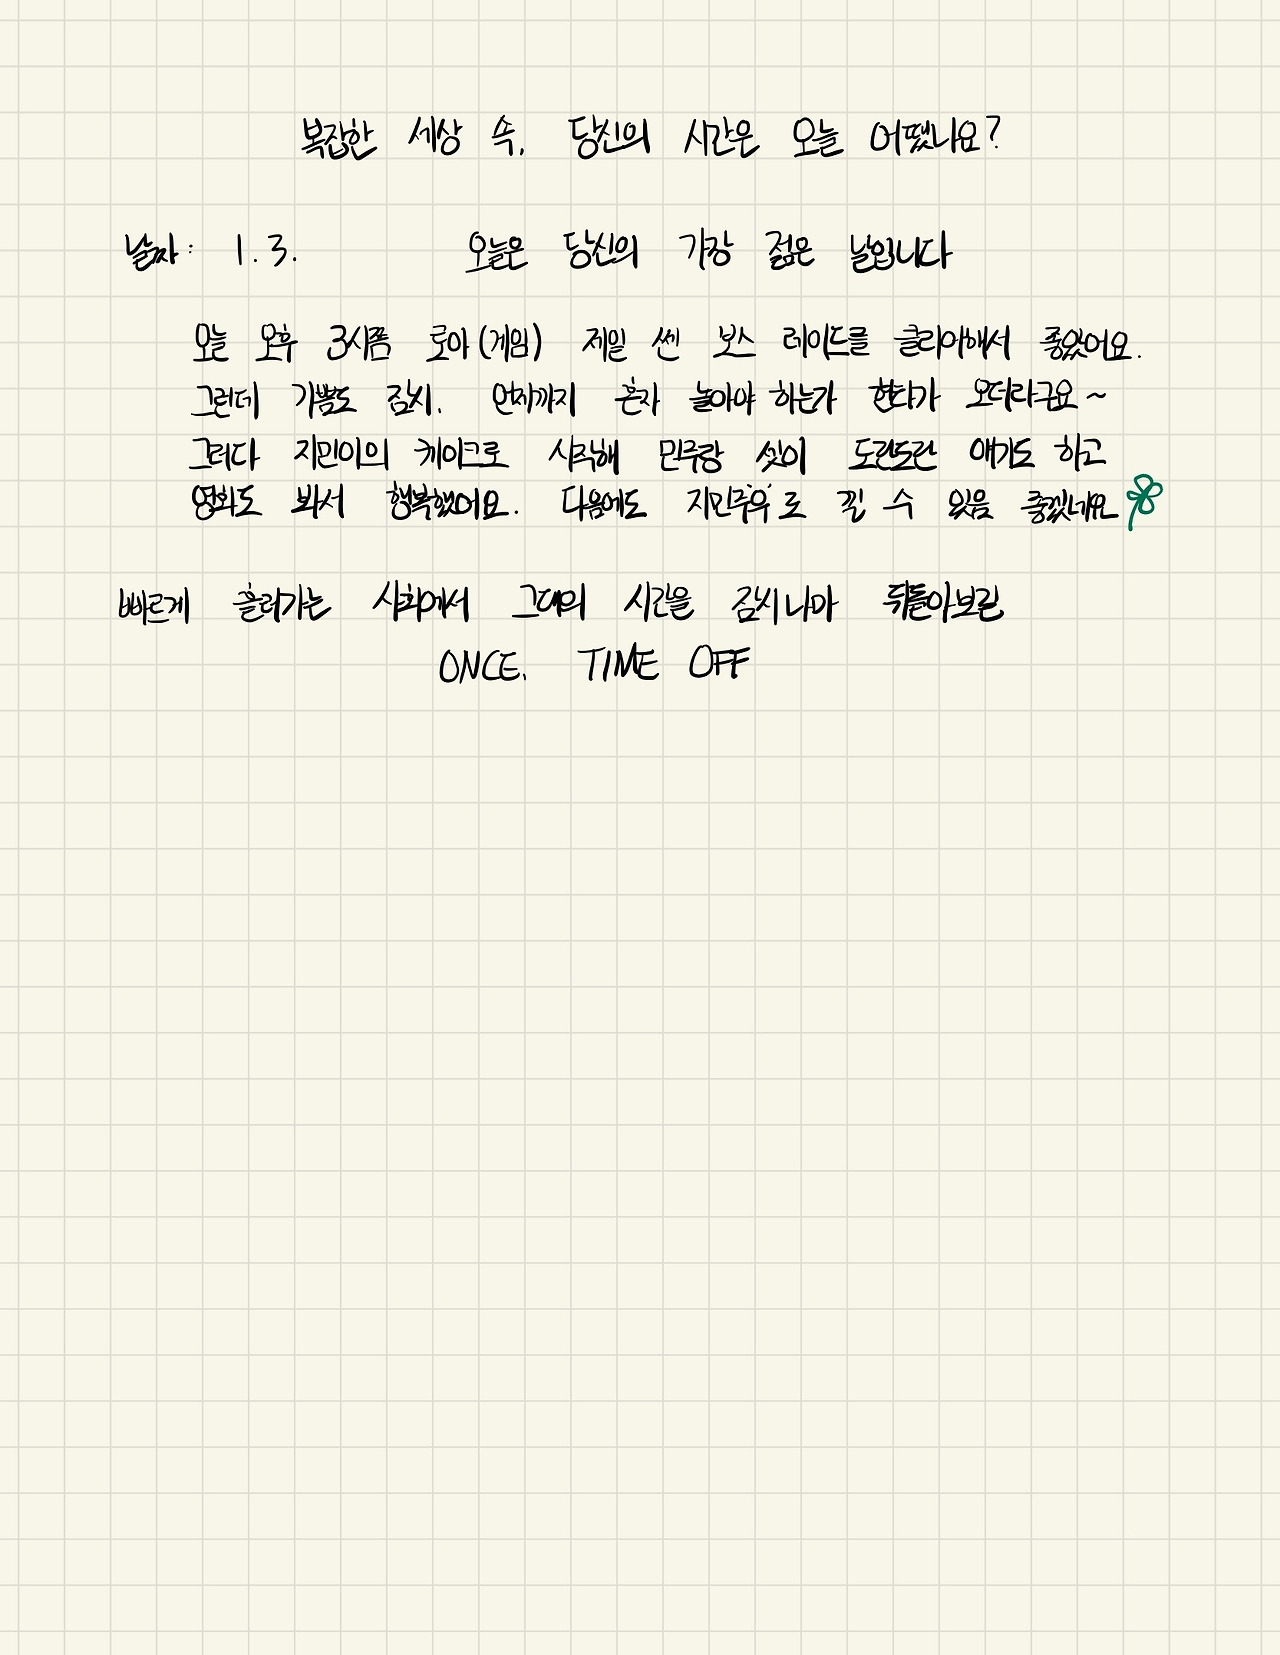 복잡한 세상 속, 당신의 시간은 오늘 어땠나요?
날짜: 1. 3. 오늘은 당신의 가장 젊은 날입니다
오늘 오후 3시쯤 로아(게임) 제일 쎈 보스 레이드를 클리어해서 좋았어요.
그런데 기쁨도 잠시, 언제까지 혼자 놀아야 하는가 현타가 오더라구요~
그러다 지민이의 케이크로 시작해 민주랑 셋이 도란도란 얘기도 하고
영화도 봐서 행복했어요. 다음에도 지민주'우'로 낄 수 있음 좋겠네요
빠르게 흘러가는 사회에서 그대의 시간을 잠시나마 뒤돌아보길
ONCE, TIME OFF